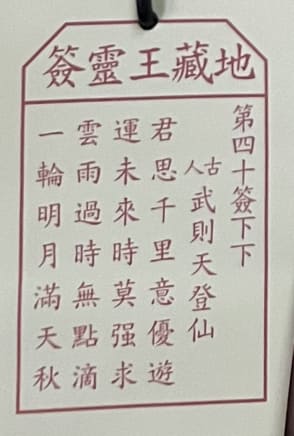 地藏王靈簽
第四十簽下下
古人武則天登仙
君思千里意優遊
運未來時莫强求
雲雨過時無點滴
一輪明月滿天秋